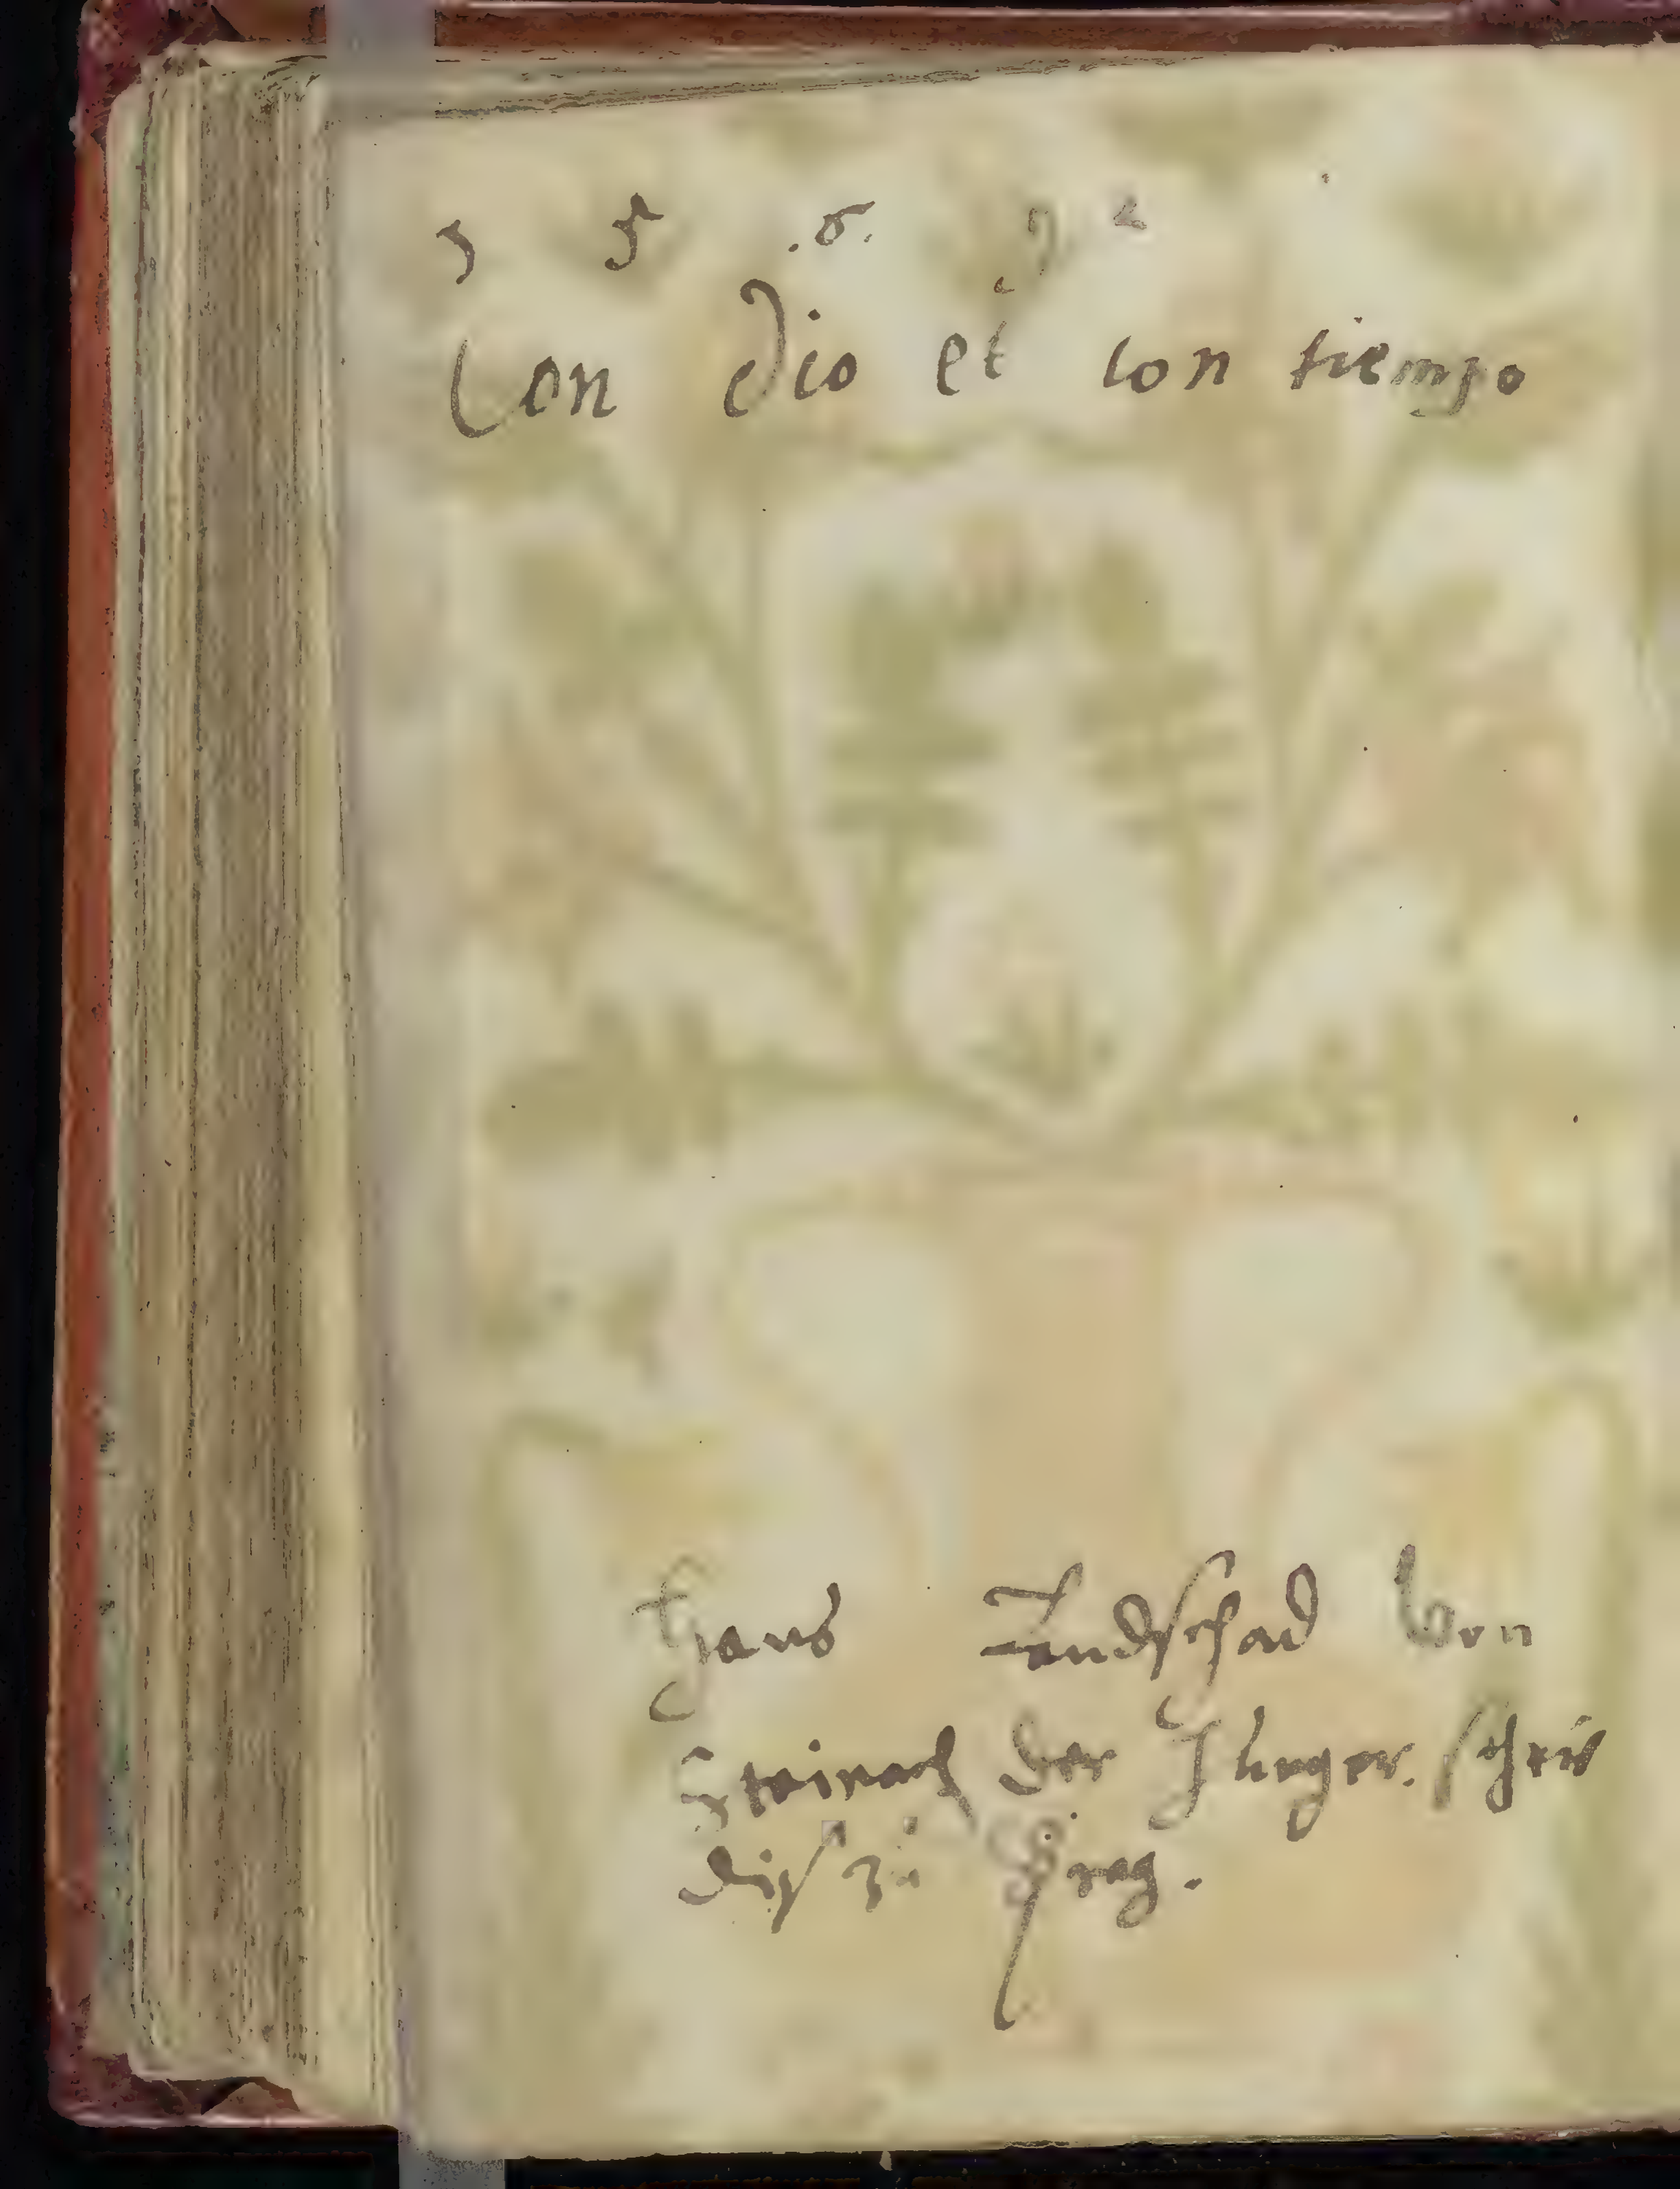 5 .6. 9 2
Con dio et con tiempo
Hans Landschad von
Steinach der Junger. schrib
diß zu Prag.